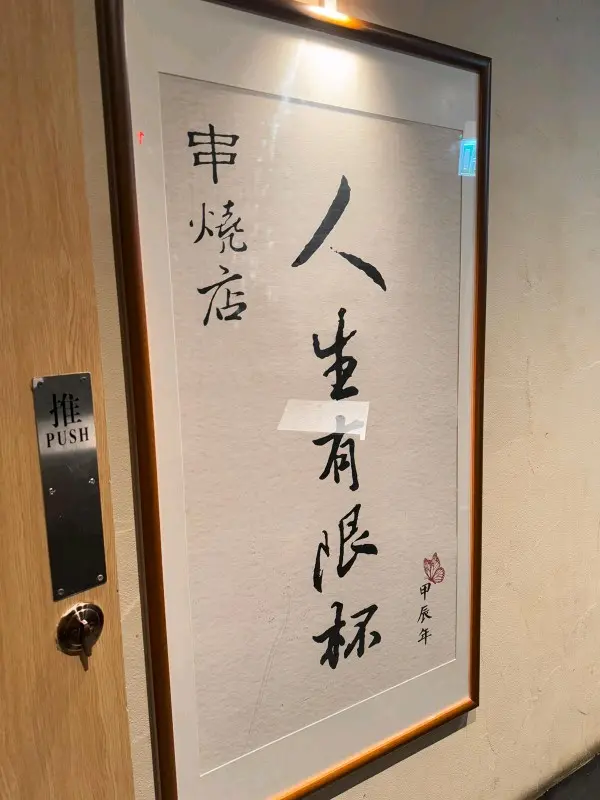 推
PUSH
串燒店
人生有限杯
甲辰年